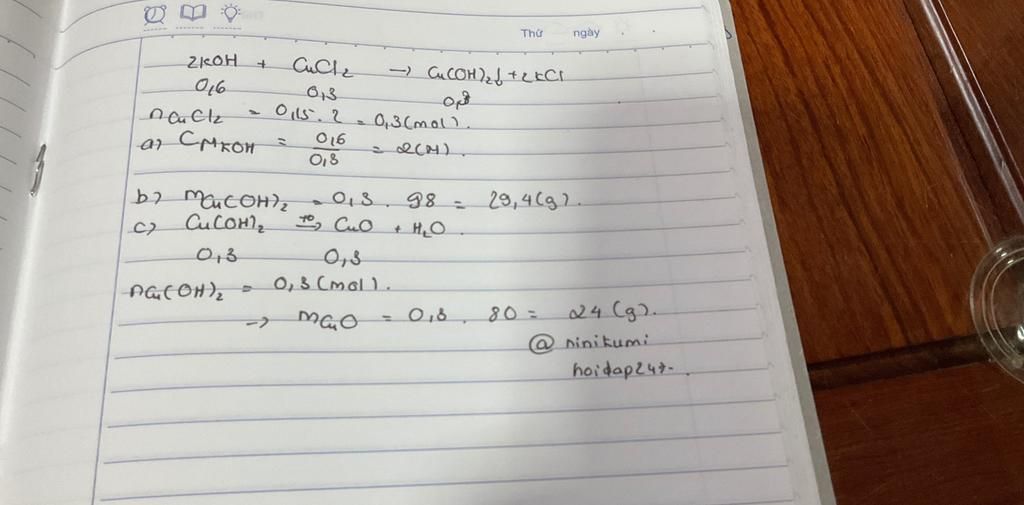 Thứ ngày
2KOH + CuCl₂ → Cu(OH)₂↓ + 2KCl
0,6 0,3 0,3
nCuCl₂ = 0,15 . 2 = 0,3 (mol).
a) CMKOH = 0,6/0,3 = 2(M).
b) mCu(OH)₂ = 0,3 . 98 = 29,4(g).
c) Cu(OH)₂ →t° CuO + H₂O.
0,3 0,3
nCu(OH)₂ = 0,3 (mol).
→ mCuO = 0,3 . 80 = 24 (g).
@ ninikumi
hoidap247.